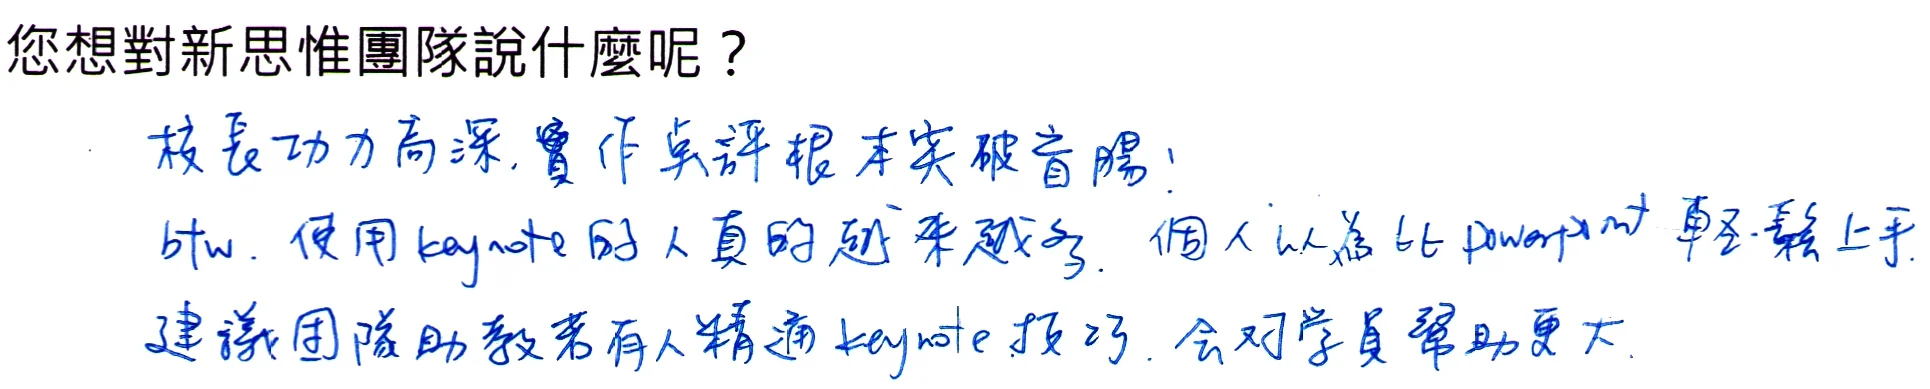 您想對新思惟團隊說什麼呢？
校長功力高深,實作點評根本突破盲腸!
btw. 使用keynote的人真的越來越多. 個人以為比powerpoint輕鬆上手.
建議团隊助教若有人精通keynote技巧. 会对学員幫助更大.